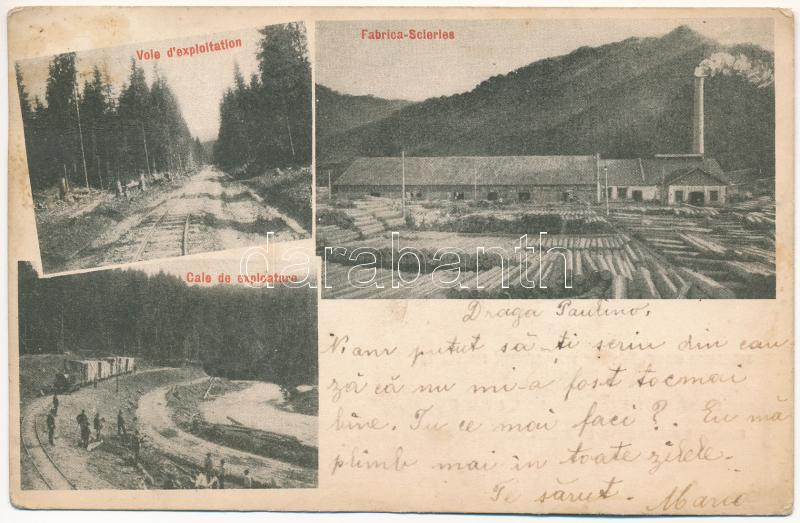 Voie d'exploitation
Fabrica-Scieries
Cale de exploature
darabanth
Draga Paulino,
N'am putut să-ti scriu din cau
ză că nu mi-a fost tocmai
bine. Tu ce mai faci? Eu mă
plimb mai în toate zilele.
Te sărut. Maria